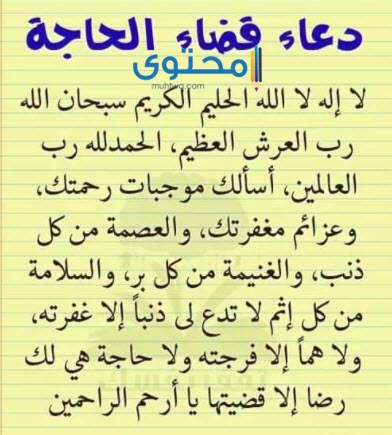 دعاء قضاء الحاجة
محتوى
muhtwa.com
لا إله لا الله الحليم الكريم سبحان الله
رب العرش العظيم، الحمدلله رب
العالمين، أسألك موجبات رحمتك،
وعزائم مغفرتك، والعصمة من كل
ذنب، والغنيمة من كل بر، والسلامة
من كل إثم لا تدع لى ذنباً إلا غفرته،
ولا هماً إلا فرجته ولا حاجة هي لك
رضا إلا قضيتها يا أرحم الراحمين